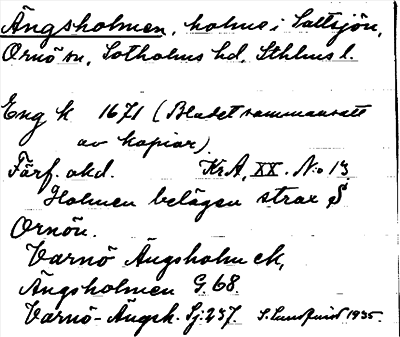 Ängsholmen, holme i Saltsjön,
Ornö sn, Sotholms hd, Sthlms l.
Eng k 1671 (Bladet sammansatt
av kopior).
Förf. okd. KrA, XX. N:o 13
Holmen belägen strax S
Ornön.
Varnö Ängsholm ek,
Ängsholmen G. 68.
Varnö-Ängsh. Sj. 237. S. Lundqvist 1935.